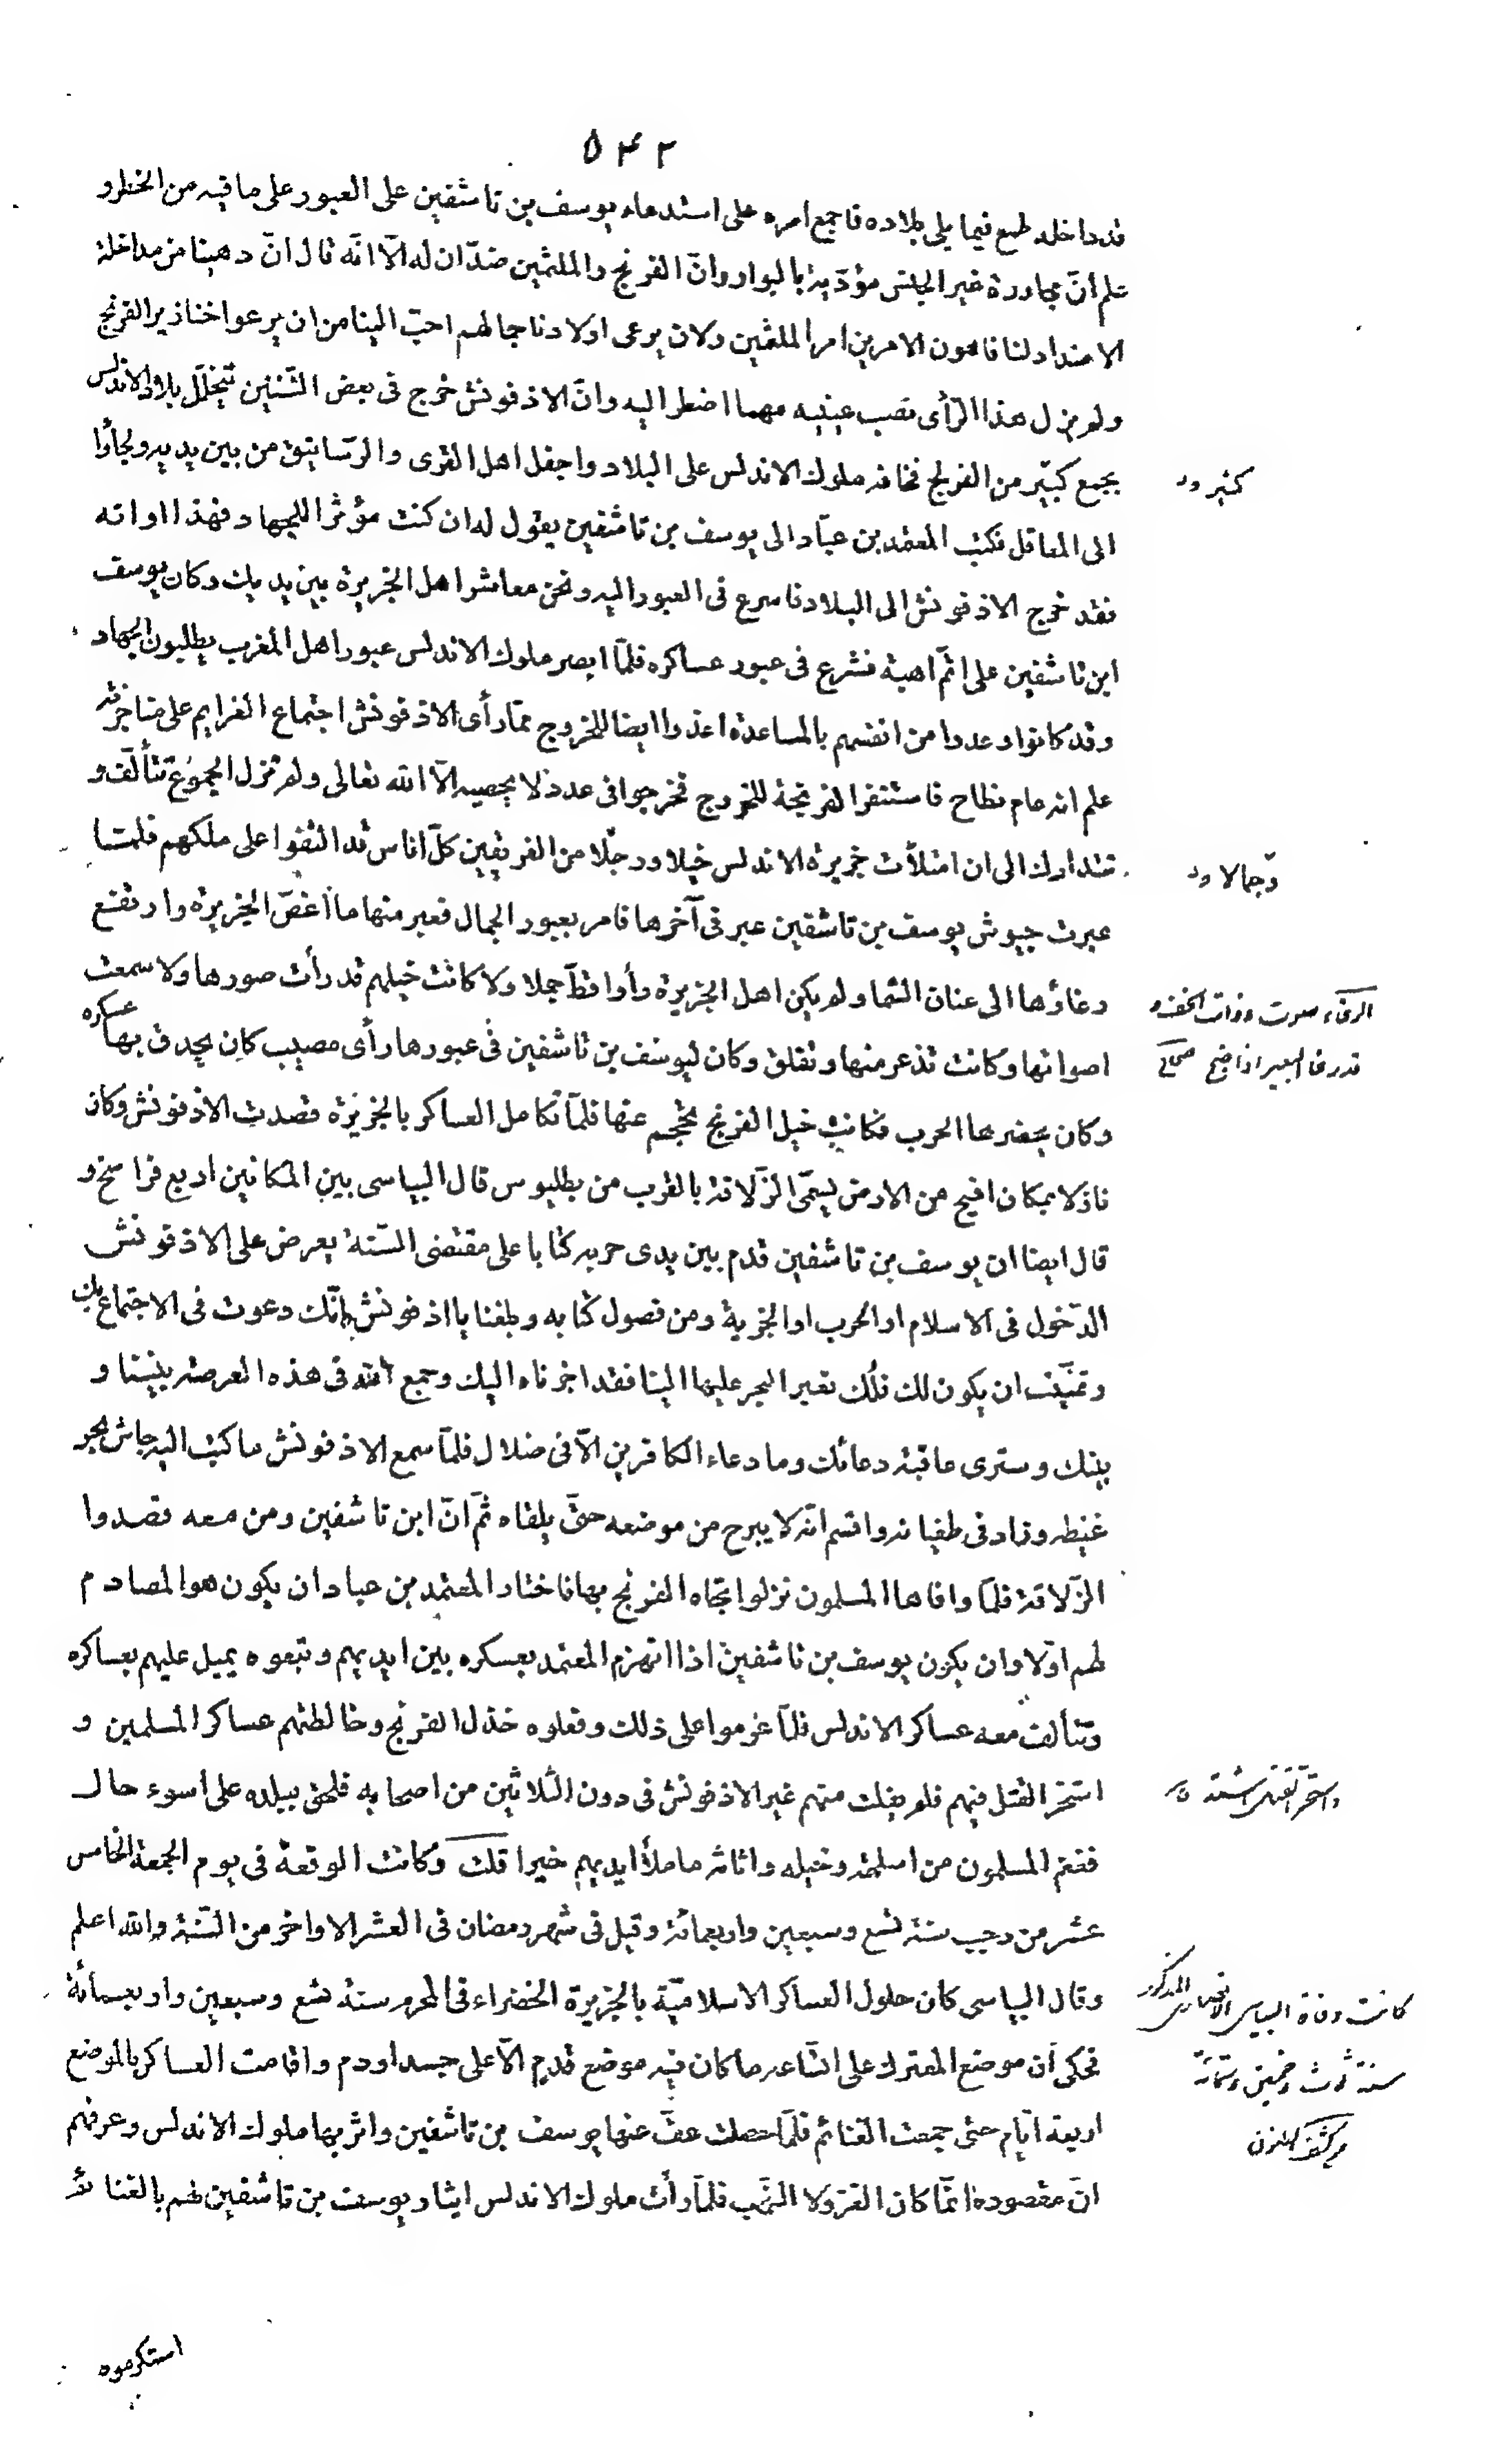 ٥٤٢
قد داخله طمع فيما يلى بلاده فاجمع امره على استدعاء يوسف بن تاشفين على العبور على ما فيه من الخطر و
علم انّ مجاورة غير الجنس مؤدّية بالبوار وانّ الفرنج والملثمين ضدّان له الّا انّه قال انّ دهينا من مداخلة
الاضداد لنا فاهون الامرين امر الملثمين ولان يرعى اولادنا جمالهم احبّ الينا من ان يرعوا خنازير الفرنج
ولم يزل هذا الرّأى نصب عينيه مهما اضطر اليه وانّ الاذفونش خرج فى بعض السّنين يتخلّل بلاد الاندلس
بجمع كبير من الفرنج فخافه ملوك الاندلس على البلاد واجفل اهل القرى والرّساتيق من بين يديه ولجأوا
كثير ود
الى المعاقل فكتب المعتمد بن عبّاد الى يوسف بن تاشفين يقول له ان كنت مؤثرا للجهاد فهذا اوانه
فقد خرج الاذفونش الى البلاد فاسرع فى العبور اليه ونحن معاشر اهل الجزيرة بين يديك وكان يوسف
ابن تاشفين على اتمّ اهبة فشرع فى عبور عساكره فلمّا ابصر ملوك الاندلس عبور اهل المغرب يطلبون الجهاد
وقد كانوا وعدوا من انفسهم بالمساعدة اعدوا ايضا للخروج فلمّا رأى الاذفونش اجتماع العزايم على مناجزته
علم انه عام نطاح فاستنفر الفرنجة للخروج فخرجوا فى عدد لا يحصيه الّا الله تعالى ولم تزل الجموع تتألّف و
تتدارك الى ان امتلأت جزيرة الاندلس خيلا ورجلا من الفريقين كلّ اناس قد التفوا على ملكهم فلمّا
وجمالا ود
عبرت جيوش يوسف بن تاشفين عبر فى آخرها فامر بعبور الجمال فعبر منها ما اغصّ الجزيرة وارتفع
رغاؤها الى عنان السّما ولم يكن اهل الجزيرة رأوا قطّ جملا ولا كانت خيلهم قد رأت صورها ولا سمعت
الرغاء صوت ذوات الخف و
قد رغا البعير اذا ضج صحاح
اصواتها وكانت تذعر منها وتقلق وكان ليوسف بن تاشفين فى عبورها رأى مصيب كان يحدق بها عسكره
وكان يحضرها الحرب فكانت خيل الفرنج تحجم عنها فلمّا تكامل العساكر بالجزيرة قصدت الاذفونش وكان
نازلا بمكان افيح من الارض يسمّى الزّلاقة بالقرب من بطليوس قال البياسى بين المكانين اربع فراسخ و
قال ايضا ان يوسف بن تاشفين قدم بين يدى حربه كتابا على مقتضى السّنة يعرض على الاذفونش
الدّخول فى الاسلام او الحرب او الجزية ومن فصول كتابه وبلغنا يا اذفونش انّك دعوت فى الاجتماع بك
وتمنّيت ان يكون لك فلك تعبر البحر عليها الينا فقد اجزناه اليك وجمع الله فى هذه العرصة بيننا و
بينك وسترى عاقبة دعائك وما دعاء الكافرين الّا فى ضلال فلمّا سمع الاذفونش ما كتب اليه جاش بحر
غيظه وزاد فى طغيانه واقسم انّه لا يبرح من موضعه حتّى يلقاه ثمّ انّ ابن تاشفين ومن معه قصدوا
الزّلاقة فلمّا وافاها المسلمون نزلوا تجاه الفرنج بها فاختار المعتمد بن عباد ان يكون هو المصادم
لهم اوّلا وان يكون يوسف بن تاشفين اذا انهزم المعتمد بعسكره بين ايديهم وتبعوه يميل عليهم بعساكره
وتتألف معه عساكر الاندلس فلمّا عزموا على ذلك وفعلوه خذل الفرنج وخالطتهم عساكر المسلمين و
استحرّ القتل فيهم فلم يفلت منهم غير الاذفونش فى دون الثلاثين من اصحابه فلحق ببلده على اسوء حال
واستحرّ القتل اشتد
فغنم المسلمون من اسلحته وخيله واثاثه ما ملأ ايديهم خيرا قلت وكانت الوقعة فى يوم الجمعة الخامس
عشر من رجب سنة تسع وسبعين واربعمائة وقيل فى شهر رمضان فى العشر الاواخر من السّنة والله اعلم
وقال البياسى كان حلول العساكر الاسلاميّة بالجزيرة الخضراء فى المحرم سنة تسع وسبعين واربعمائة
كانت وفاة البياسى الانصارى المذكور
سنة ثلث وخمسين وستمائة
من كشف الظنون
فحكى ان موضع المعترك على اتّساعه ما كان فيه موضع قدم الّا على جسد او دم واقامت العساكر بالموضع
اربعة ايّام حتى جمعت الغنائم فلمّا حصلت عفّ عنها يوسف بن تاشفين واثر بها ملوك الاندلس وعرفهم
انّ مقصوده انّما كان الغزو لا النّهب فلمّا رأت ملوك الاندلس ايثار يوسف بن تاشفين لهم بالغنائم
استكرموه